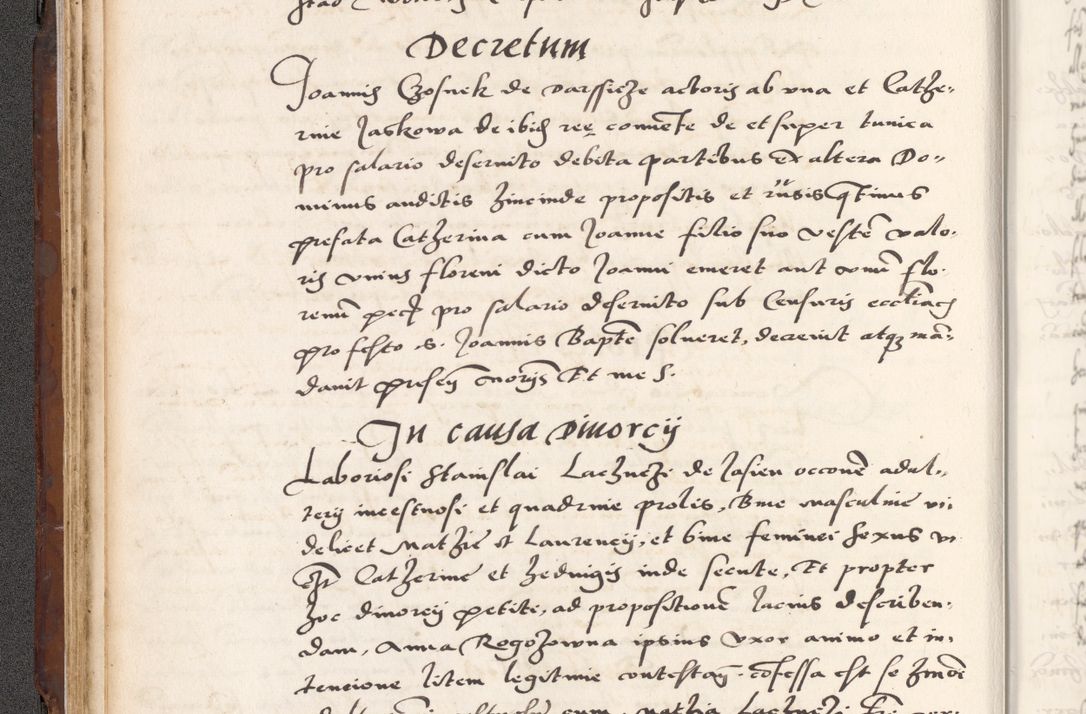 Decretum
Joannis Czosnek de Darssicze actoris ab una et Cathe„
rine Jaskowa de ibid ree convente de et super tunica
pro salario deservito debita partibus Ex altera Do„
minus auditis hincinde propositis et rusis quatinus
prefata Catherina cum Joanne filio suo vestem valo„
ris unius floreni dicto Joanni emeret aut unum flo„
renum pro salario deservito sub Censuris
pro festo S. Joannis Bapte solveret, decrevit atq man„
davit Et me S.
In causa Divorcij
Laboriosi Stanislai Laczneze de Jasien occone adul„
terij incestuosi et quadrine prolis, Bine masculine vi„
delicet Mathie et Laurencij, et bine feminei Sexus
Catherine et Hedvigis inde secute, Et propter
hoc divorcij petite, ad propositione lacius describen„
dam, Anna Rogozowna ipsius uxor animo et in„
tencione litem legitime contestan. cofessa est se